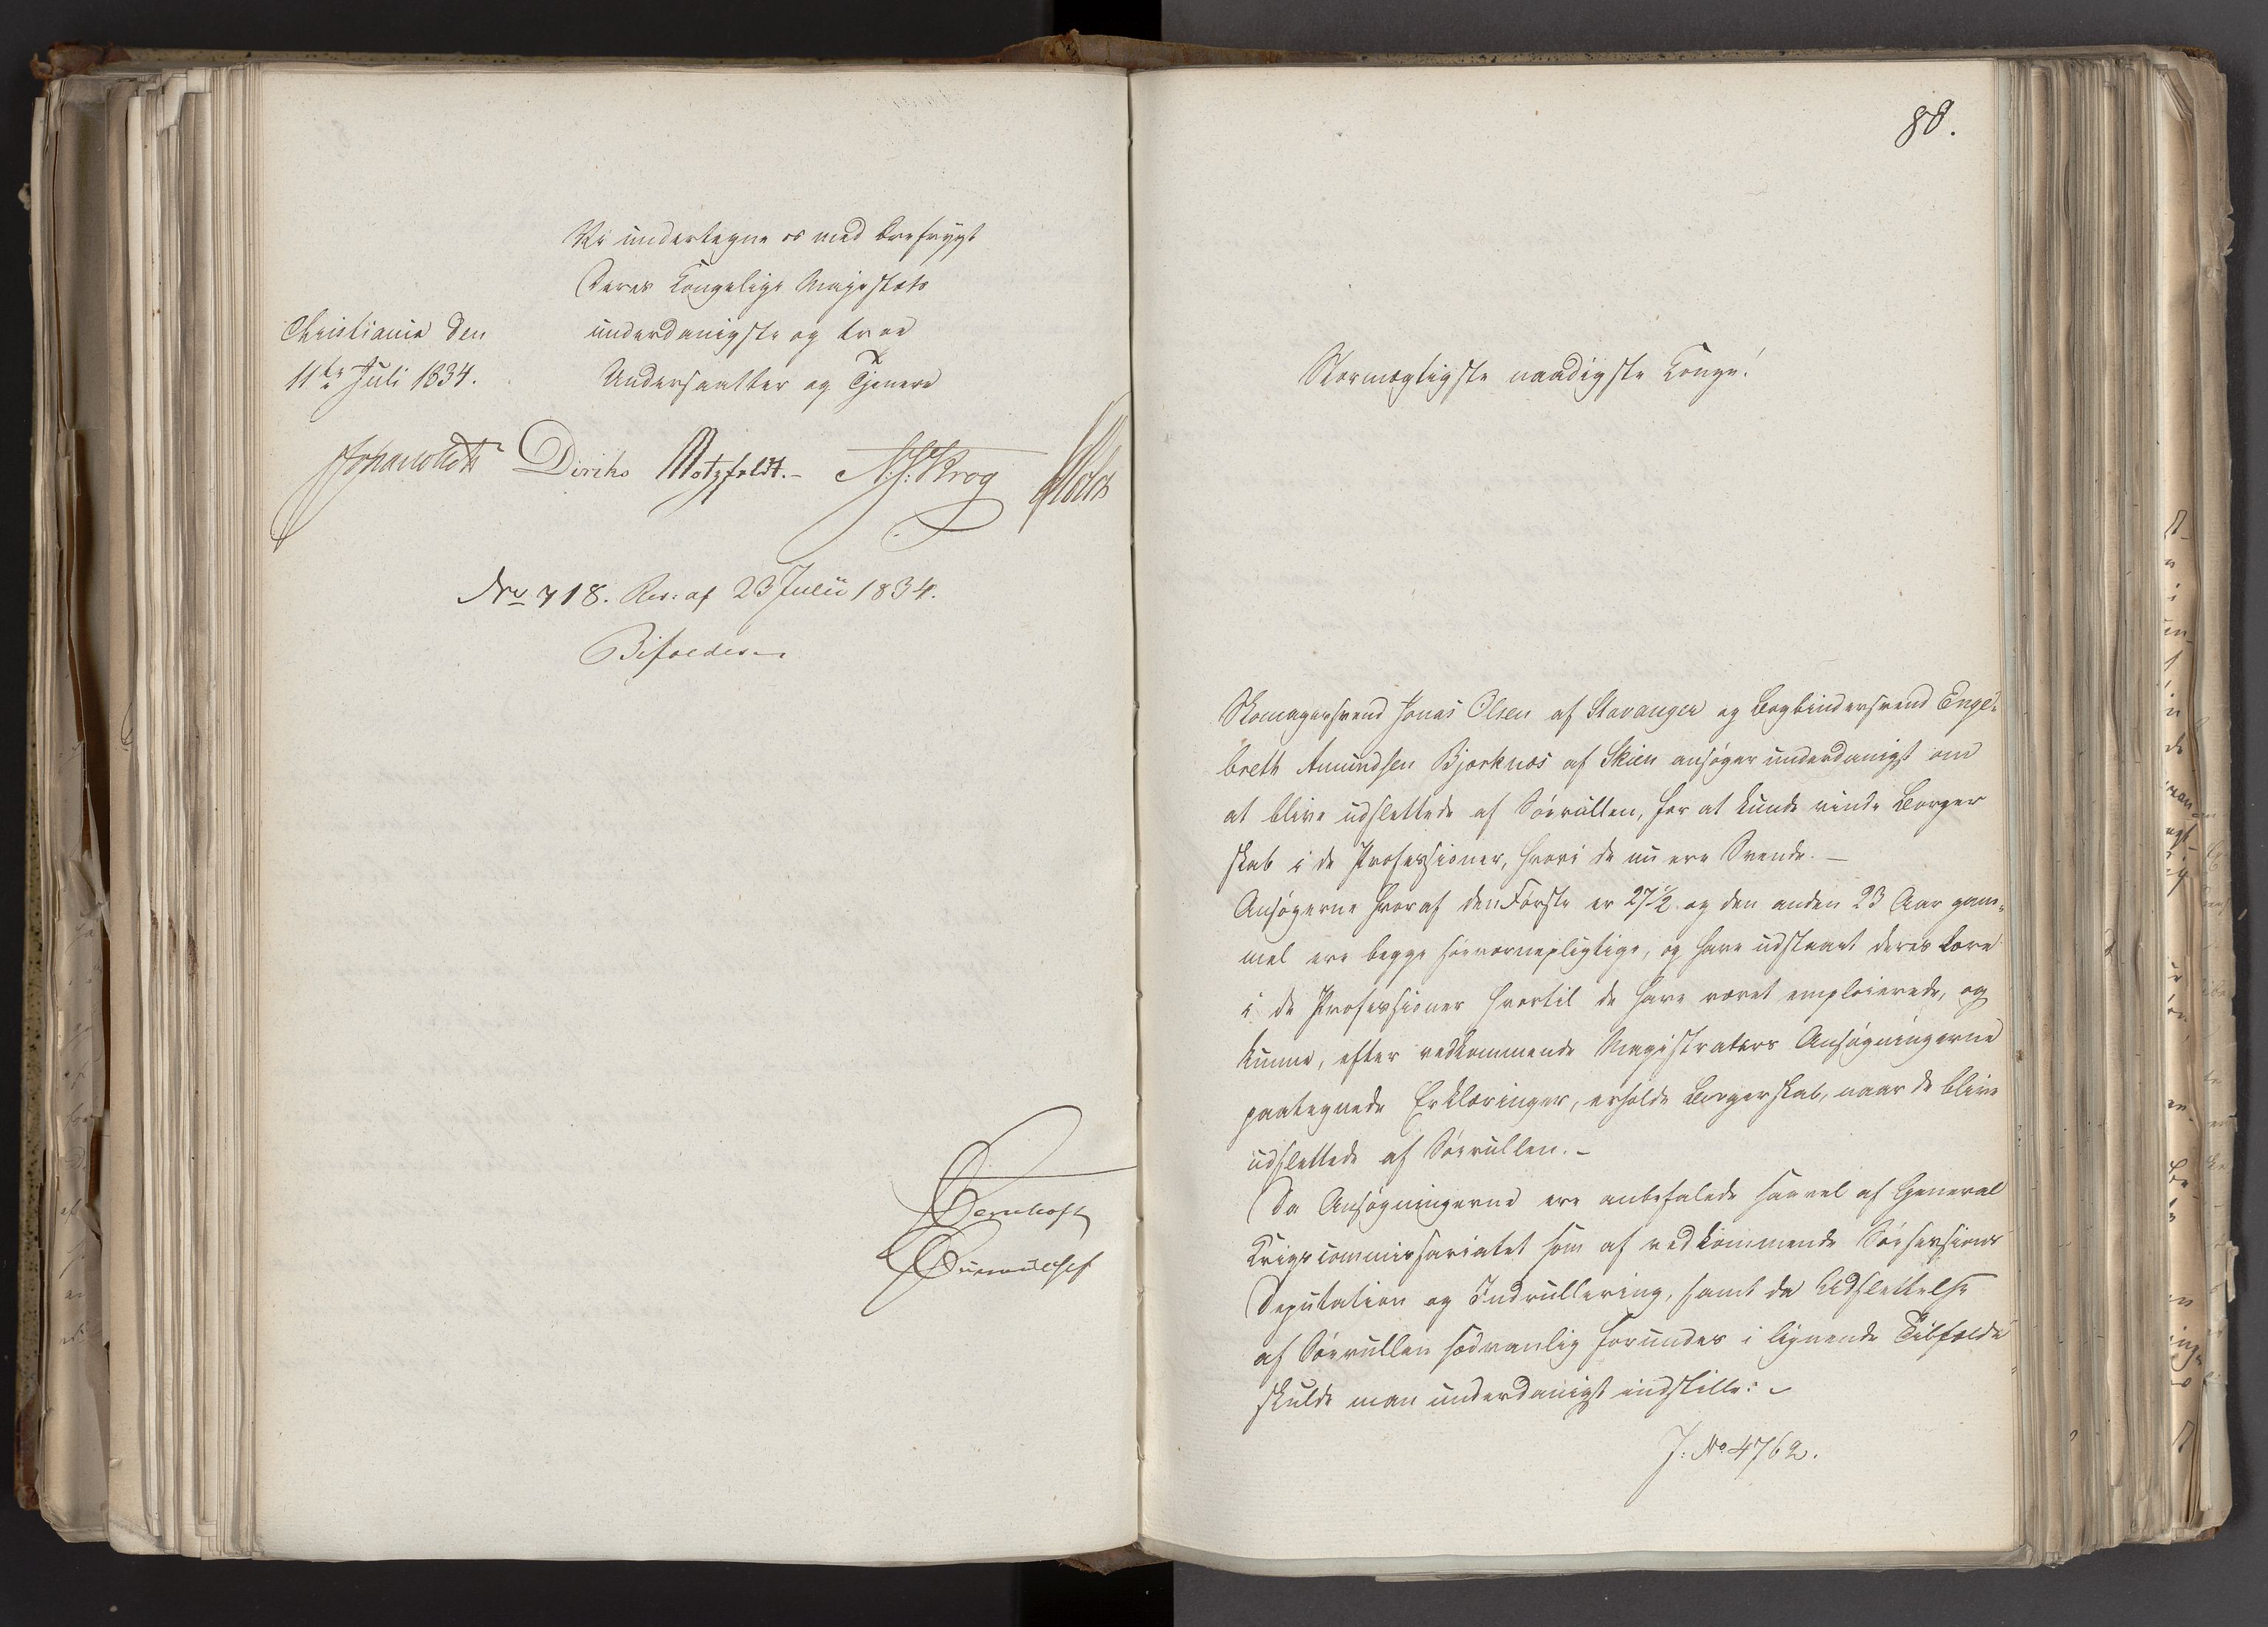 Vi undertegne os med Ærefrygt
Deres Kongelige Majestæts
Christiania den
underdanigste og troe
11te Juli 1834.
Undersaatter og Tjenere
Diriks Motzfeldt.- N: J: Krog Holst
No 718. Res: af 23 Julii 1834.
Bifaldes
88.
Stormægtigste naadigste Konge!
Skomagersvend Jonas Olsen af Stavanger og Bogbindersvend Enge-
breth Amundsen Bjørknæs af Skien ansøger underdanigst om
at blive udslettede af Søerullen, for at kunde vinde Borger
skab i de Professioner, hvori de nu ere Svende. —
Ansøgerne hvoraf den Første er 27½ og den anden 23 Aar gam-
mel ere begge søeværnepligtige, og have udstaaet deres Lære
i de Professioner hvortil de have været emploierede, og
kunne, efter vedkommende Magistraters Ansøgningerne
paategnede Erklæringer, erholde Borgerskab, naar de blive
udslettede af Søerullen. -
Da Ansøgningerne ere anbefalede saavel af General
Krigscommissariatet som af vedkommende Søesessions
Deputation og Indrullering, samt da Udslettelse
af Søerullen sædvanlig forundes i lignende Tilfælde
skulde man underdanigst indstille: -
J: No 4762.